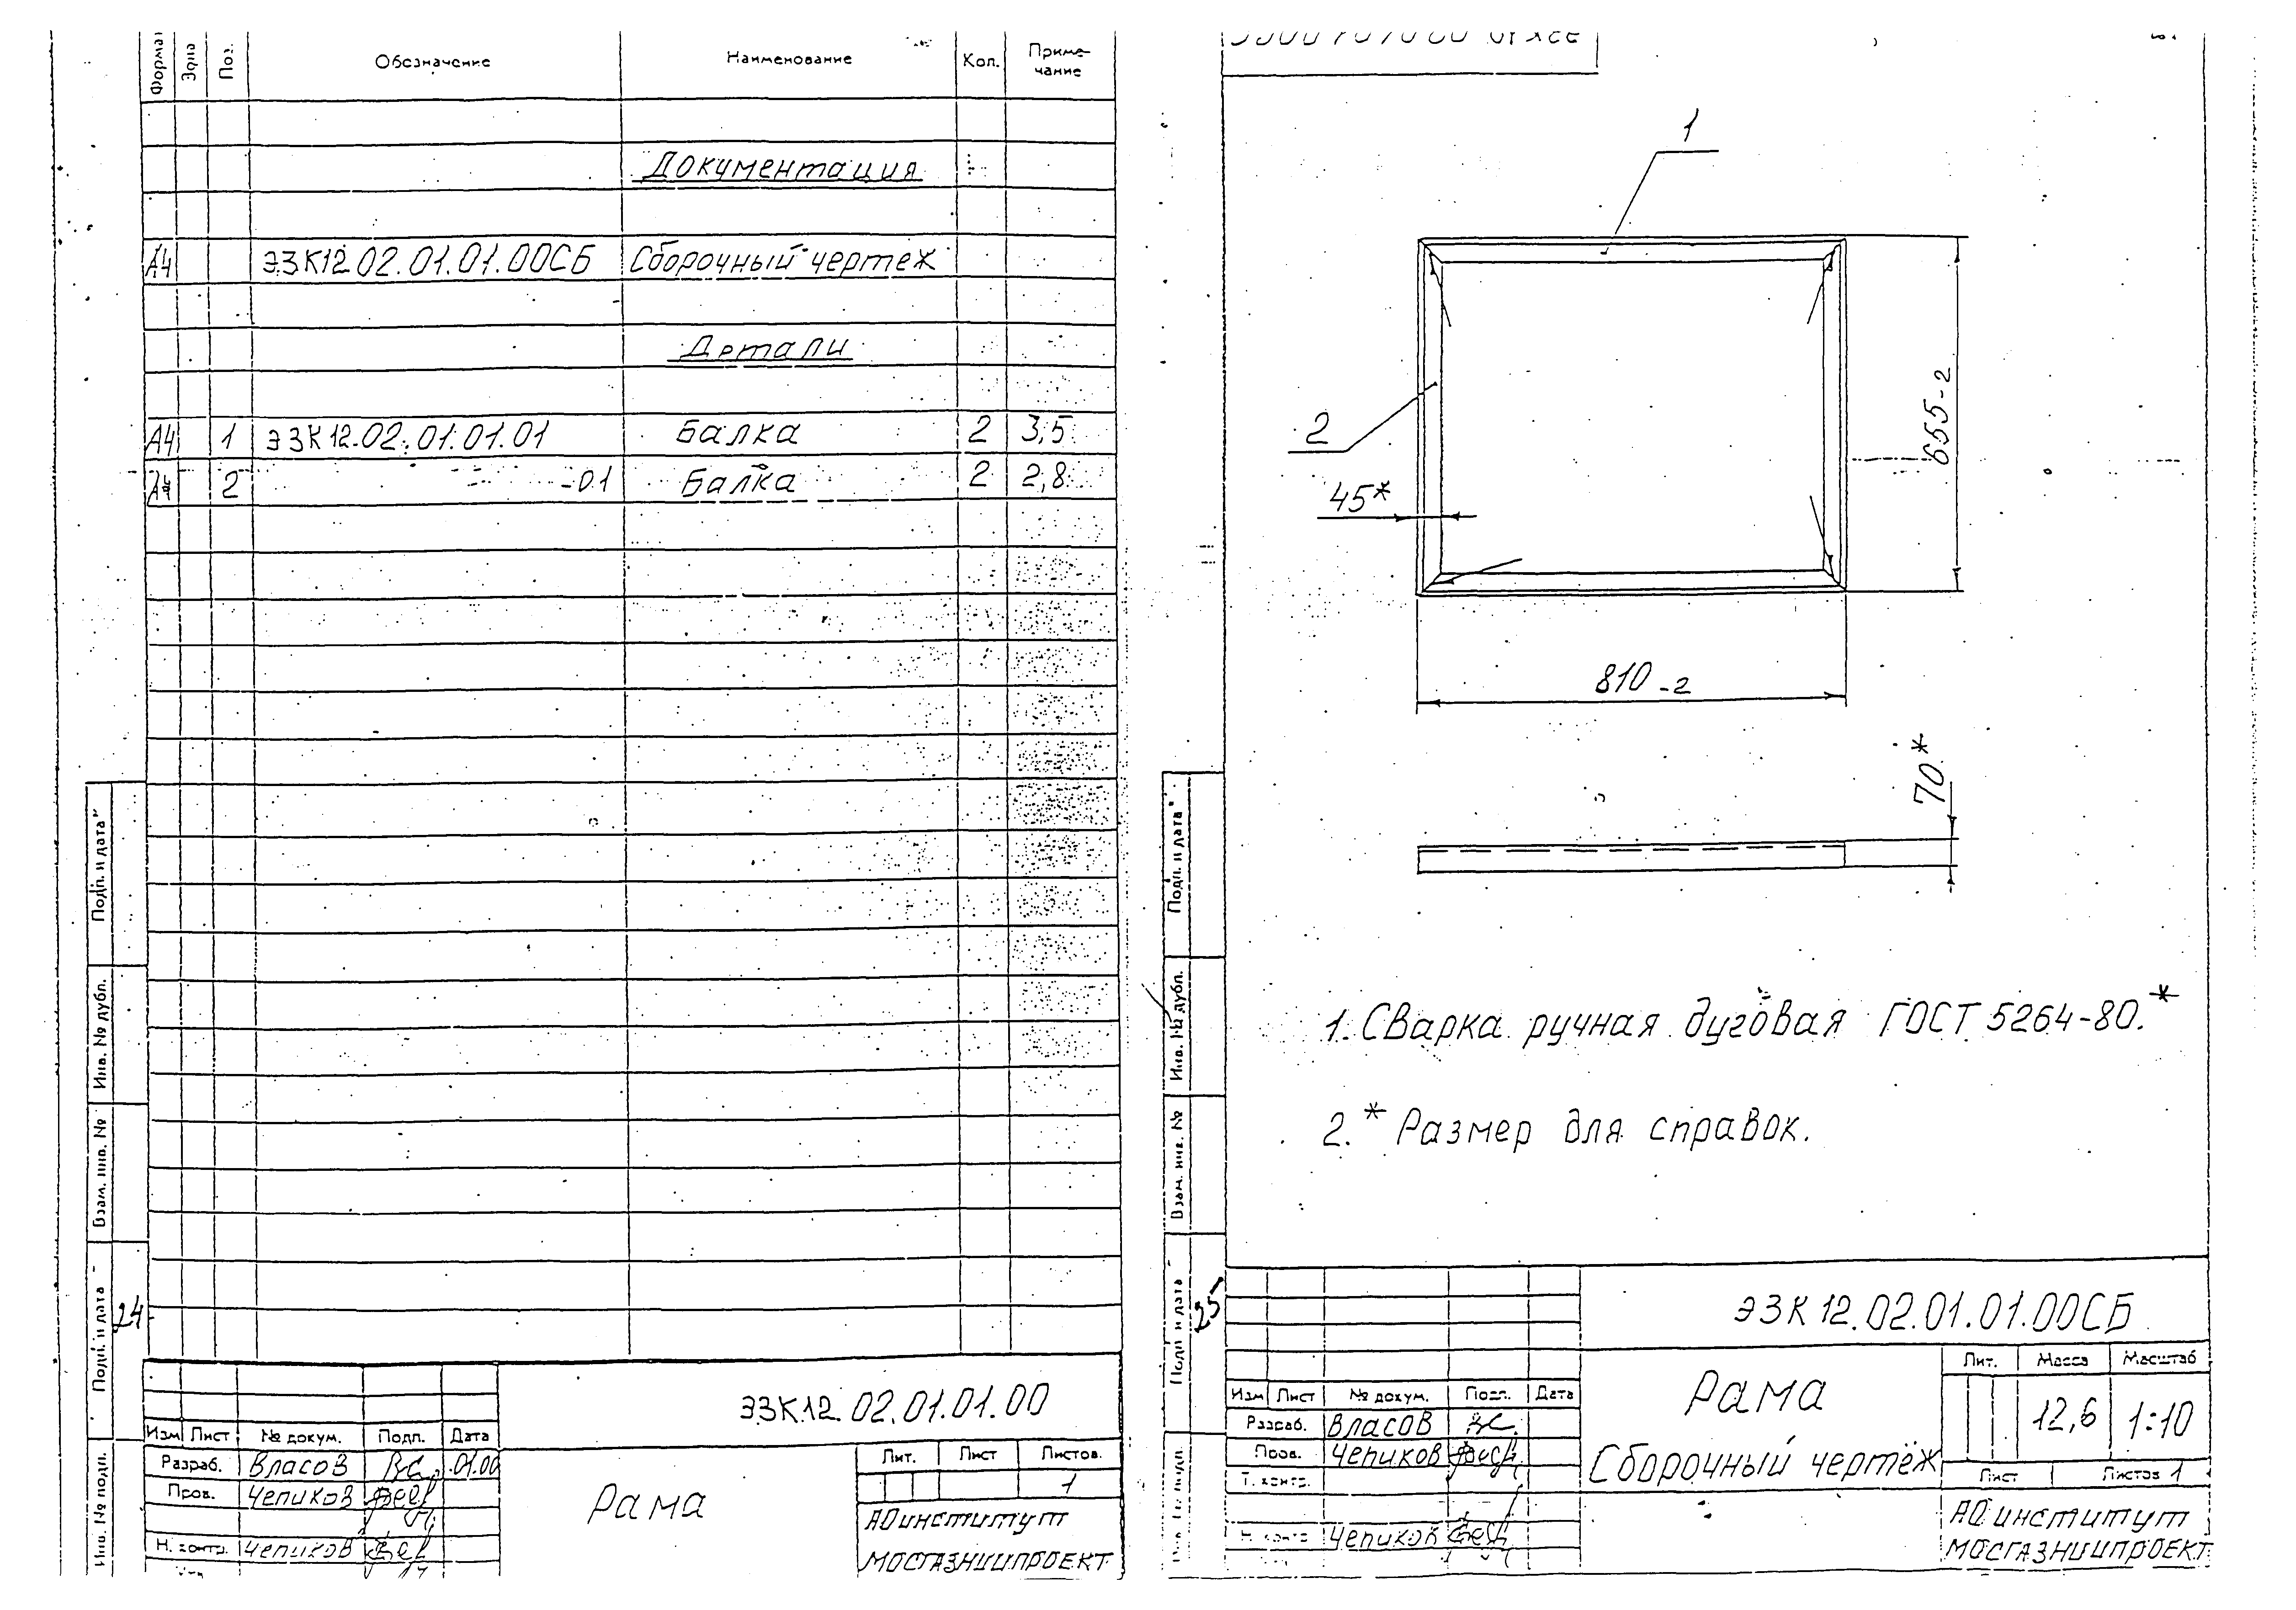 Формат Зона Поз. Обозначение Наименование Кол. Приме-
чание
Документация
А4 ЭЗК12.02.01.01.00СБ Сборочный чертеж
Детали
А4 1 ЭЗК12.02.01.01.01 Балка 2 3,5
А4 2 -01 Балка 2 2,8
Подп. и дата
Инв. № дубл.
Взам. инв. №
Подп. и дата
24
Инв. № подл.
ЭЗК12.02.01.01.00
Изм Лист № докум. Подп. Дата
Разраб. Власов 01.00
Пров. Чепиков
Н. контр. Чепиков
Рама
Лит. Лист Листов
1
АО институт
МОСГАЗНИИПРОЕКТ
1
2
45*
655-2
810-2
70*
1. Сварка ручная дуговая ГОСТ 5264-80.*
2.* Размер для справок.
Подп. и дата
Инв. № дубл.
Взам. инв. №
Подп. и дата
25
ЭЗК12.02.01.01.00СБ
Изм Лист № докум. Подп. Дата
Разраб. Власов
Пров. Чепиков
Т. контр.
Н. контр. Чепиков
Рама
Сборочный чертёж
Лит. Масса Масштаб
12,6 1:10
Лист Листов 1
АО институт
МОСГАЗНИИПРОЕКТ